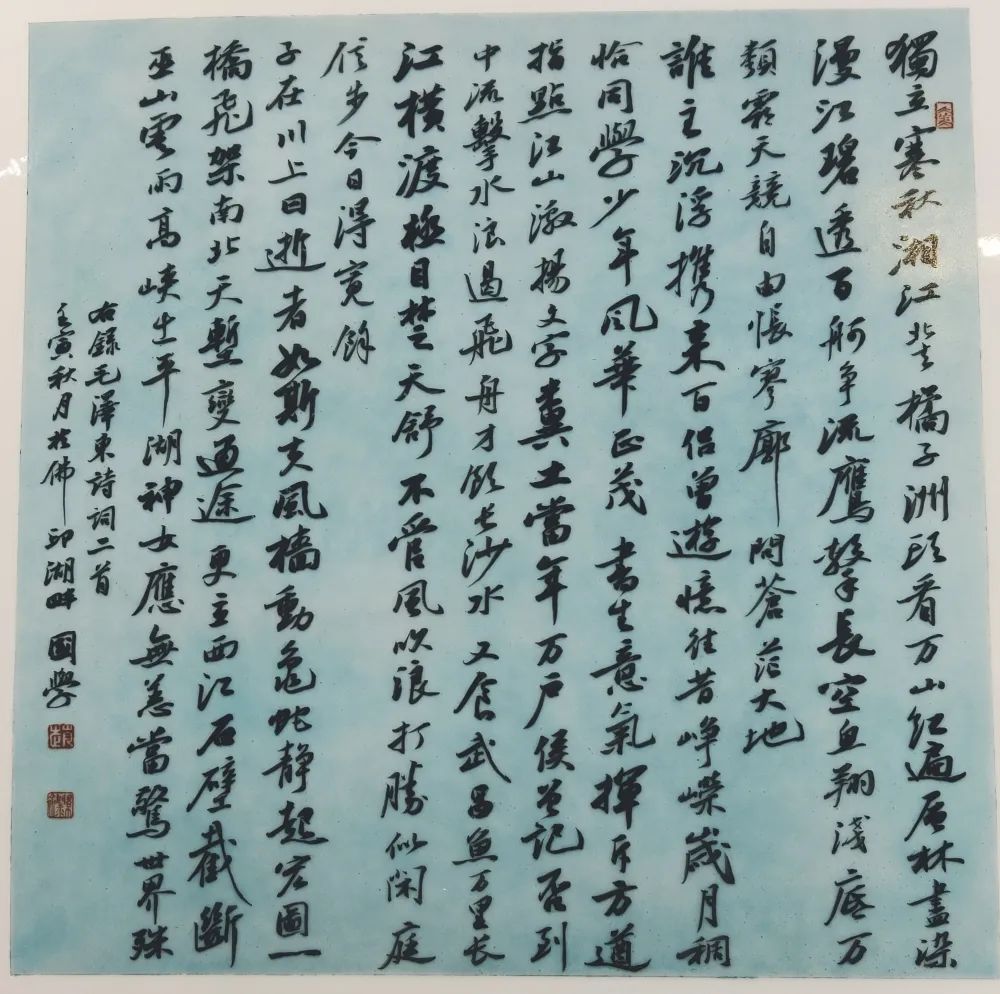 獨立寒秋湘江北去橘子洲头看万山红遍层林盡染
漫江碧透百舸争流鷹擊長空鱼翔淺底万
類霜天競自由悵寥廓問蒼茫大地
誰主沉浮携来百侣曾遊憶往昔崢嶸歲月稠
恰同學少年風華正茂書生意氣揮斥方遒
指點江山激揚文字糞土當年万户侯曾記否到
中流擊水浪遏飛舟才飲长沙水又食武昌魚万里长
江横渡極目楚天舒不管風吹浪打勝似閑庭
信步今日得寬餘
子在川上曰逝者如斯夫風檣動龜蛇静起宏圖一
橋飛架南北天塹變通途更立西江石壁截斷
巫山雲雨高峡出平湖神女應無恙當驚世界殊
右錄毛澤東詩詞二首
壬寅秋月於佛印湖畔國學